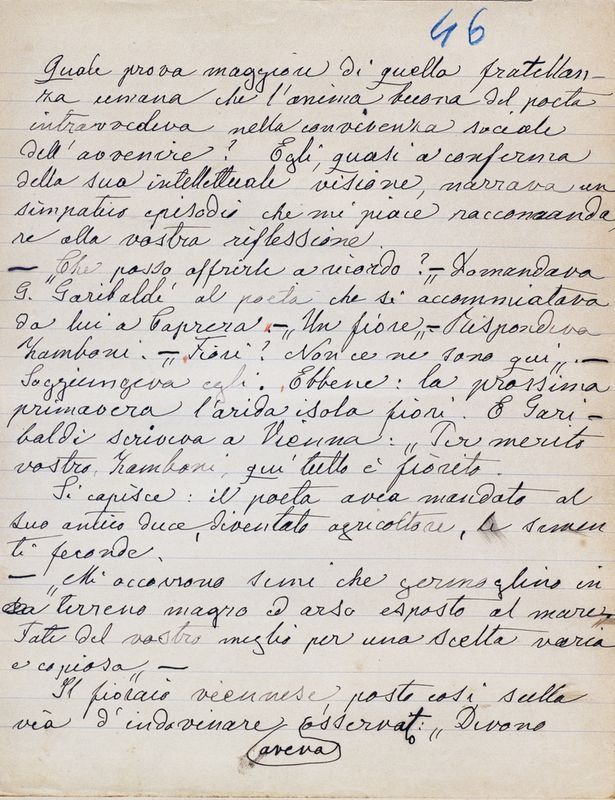 46
Quale prova maggiore di quella fratellan-
za umana che l'anima buona del poeta
intravvedeva nella convivenza sociale
dell'avvenire? Egli, quasi a conferma
della sua intellettuale visione, narrava un
simpatico episodio che mi piace raccomanda,
re alla vostra riflessione.
— „Che posso offrirle a ricordo?„— Domandava
G. Garibaldi al poeta che si accommiatava
da lui a Caprera. — „Un fiore„ — Rispondeva
Zamboni. — „Fiori? Non ce ne sono qui„. —
Soggiungeva egli. Ebbene: la prossima
primavera l'arida isola fiorì. E Gari-
baldi scriveva a Vienna: „Per merito
vostro, Zamboni, qui tutto è fiorito.
Si capisce: il poeta avea mandato al
suo antico duce, diventato agricoltore, le semen
ti feconde.
— „Mi occorrono semi che germoglino in
terreno magro ed arso esposto al mare.
Fate del vostro meglio per una scelta varia
e copiosa„ —
Il fioraio viennese, posto così sulla
via d'indovinare osservato: „Devono
aveva